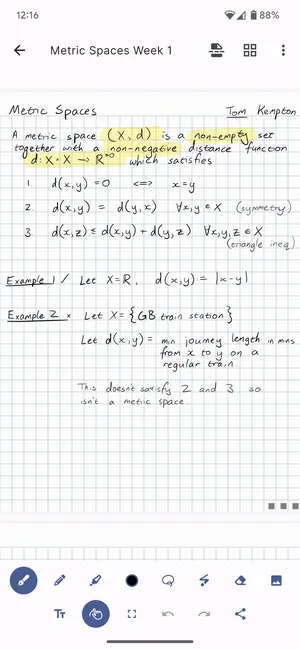 12:16
88%
Metric Spaces Week 1
Metric Spaces Tom Kempton
A metric space (X, d) is a non-empty set
together with a non-negative distance function
d: X × X → R≥0 which satisfies
1. d(x,y) = 0 <=> x=y
2. d(x,y) = d(y,x) ∀x,y ∈ X (symmetry)
3. d(x,z) ≤ d(x,y) + d(y,z) ∀x,y,z ∈ X
(triangle ineq)
Example 1 ✓ Let X=R, d(x,y) = |x-y|
Example 2 × Let X = {GB train station}
Let d(x,y) = min journey length in mins
from x to y on a
regular train.
This doesn't satisfy 2 and 3 so
isn't a metric space.
Tт